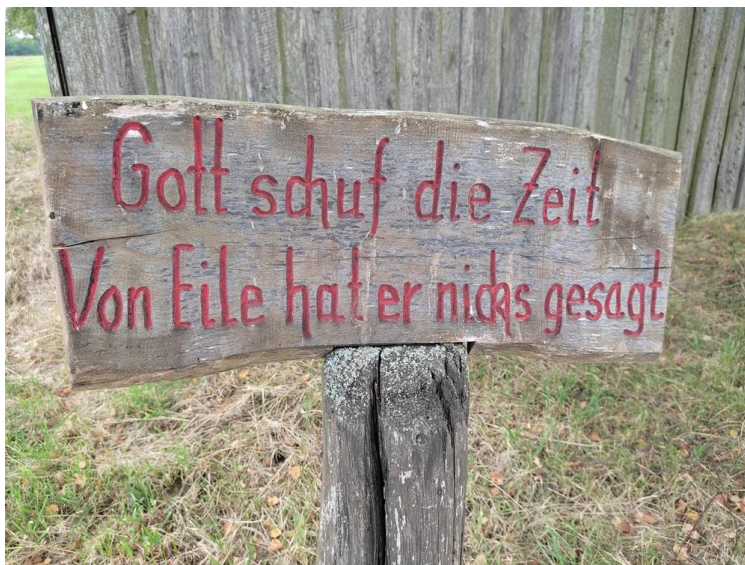 Gott schuf die Zeit
Von Eile hat er nichs gesagt